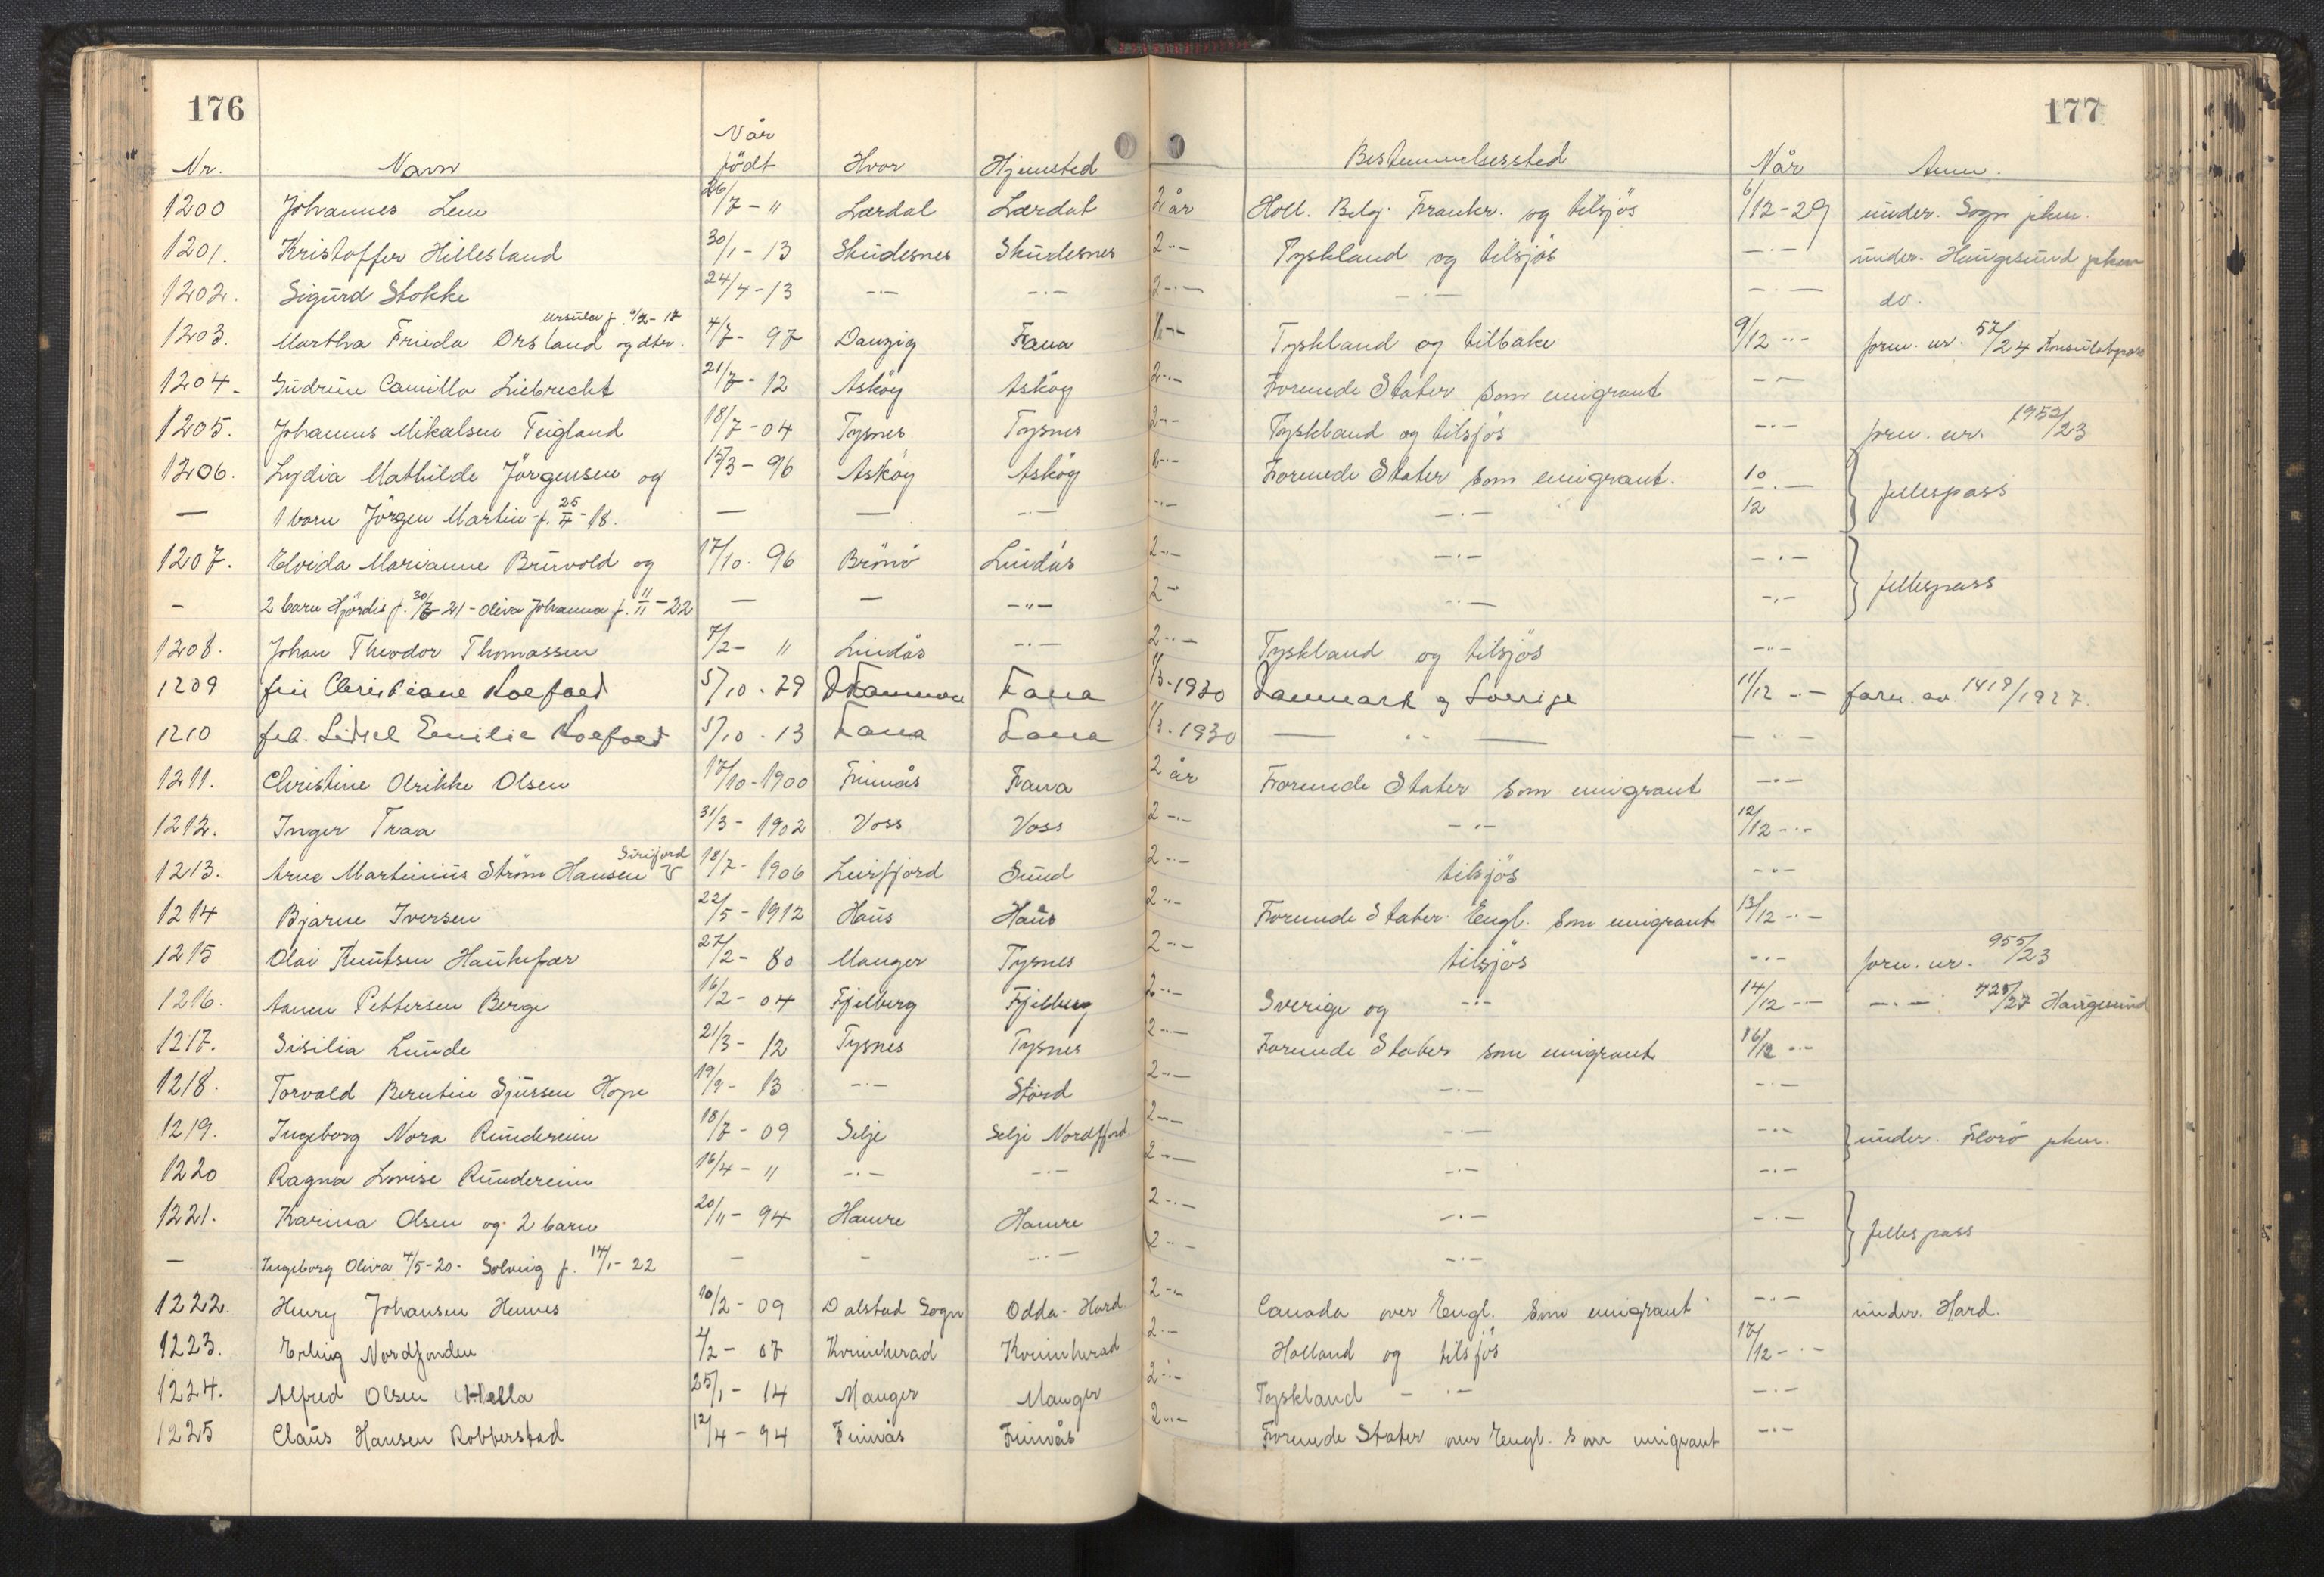 176
177
Når
Nr. Navn født Hvor Hjemsted Bestemmelsessted Når Anm.
1200 Johannes Lem 26/7 - 11 Lærdal Lærdal 2 år Holl. Belg. Frankr. og tilsjøs 6/12-29 under. Sogn pkm.
1201. Kristoffer Hillesland 30/1 - 13 Skudesnes Skudesnes 2 -·- Tyskland og tilsjøs -·- under. Haugesund pkm
1202. Sigurd Stokke 24/4 - 13 -·- -·- 2 -·- -·- -·- do.
Ursula f. 18
1203. Martha Frieda Orsland og dtr. 4/7 - 97 Danzig Fana -·- Tyskland og tilbake 9/12 -·- forn. nr. 57/24 Konsulatpass
1204. Gudrun Camilla Liebrecht 21/7 - 12 Askøy Askøy 2 -·- Forenede Stater som emigrant -·-
1205. Johannes Mikalsen Teigland 18/7 - 04 Tysnes Tysnes 2 -·- Tyskland og tilsjøs -·- forn. nr. 1952/23
1206. Lydia Mathilde Jørgensen og 15/3 - 96 Askøy Askøy 2 -·- Forenede Stater som emigrant. 10/12 -·- } fellespass
— 1 barn Jørgen Martin f. 25/4 - 18. — — -·- -·- -·-
1207. Elvida Marianne Bruvold og 17/10 - 96 Brönö Lindås 2 -·- -·- -·- } fellespass
- 2 barn Hjördis f. 30/6 - 21 - Oliva Johanna f. 11/11 - 22 — — -"- 2 - -·- -·-
1208. Johan Theodor Thomassen 7/2 - 11 Lindås -·- 2 -·- Tyskland og tilsjøs -·-
1209 fru Christiane Koefoed 5/10 - 79 Fana 1/3-1930 Danmark og Sverige 11/12 -·- forn. av 1419/1927.
1210 frk. Sidsel Emilie Koefoed 5/10 - 13 Fana Fana 1/3-1930 — ·· — — · —
1211. Christine Olrikke Olsen 17/10-1900 Finnås Fana 2 år Forenede Stater som emigrant -·-
1212. Inger Traa 31/3 - 1902 Voss Voss 2 -·- -·- 12/12 -·-
Sörifjord
1213. Arne Martinius Ström Hansen 18/7 - 1906 Leirfjord Sund 2 -·- tilsjøs -·-
1214 Bjarne Iversen 22/5 - 1912 Haus Haus 2 -·- Forenede Stater Engl. som emigrant 13/12 -·-
1215 Olai Knutsen Haukefær 27/2 - 80 Manger Tysnes 2 -·- tilsjøs -·- forn. nr. 955/23
1216. Aanen Pettersen Berge 16/2 - 04 Fjelberg Fjelberg 2 -·- Sverige og -·- 14/12 -·- -·- 428/27 Haugesund
1217. Sisilia Lunde 21/3 - 12 Tysnes Tysnes 2 -·- Forenede Stater som emigrant 16/12 -·-
1218. Torvald Berntin Sjursen Hope 19/9 - 13 -·- Stord 2 -·- -·- -·-
1219. Ingeborg Nora Rundereim 18/7 - 09 Selje Selje Nordfjord 2 -·- -·- -·- } under. Florö pkm.
1220 Ragna Lovise Rundereim 16/4 - 11 -·- -·- 2 -·- -·- -·-
1221. Karina Olsen og 2 barn 20/11 - 94 Hamre Hamre 2 -·- -·- -·- } fellespass
— Ingeborg Oliva 4/5-20 - Solveig f. 14/1 - 22 - - -·- 2 -·- -·-
1222. Henry Johansen Hennes 10/2 - 09 Dalstad Sogn Odda - Hard. 2 -·- Canada over Engl. som emigrant -·- under. Hard.
1223. Erling Nordfonden 4/2 - 07 Kvinnherad Kvinnherad 2 -·- Holland og tilsjøs 17/12 -·-
1224. Alfred Olsen Hella 25/1 - 14 Manger Manger 2 -·- Tyskland - ·- -·-
1225 Claus Hansen Robberstad 12/4 - 94 Finnås Finnås 2 -·- Forenede Stater over Engl. som emigrant -·-